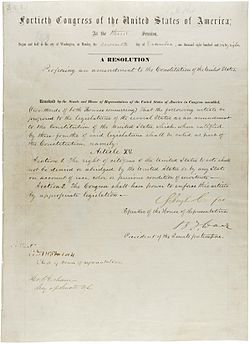 Fortieth Congress of the United States of America;
At the Third Session,
Begun and held at the city of Washington, on Monday, the seventh day of December, one thousand eight hundred and sixty-eight.
A RESOLUTION
Proposing an amendment to the Constitution of the United States.
Resolved by the Senate and House of Representatives of the United States of America in Congress assembled,
(two-thirds of both Houses concurring) That the following article be
proposed to the legislatures of the several States as an amendment
to the Constitution of the United States, which, when ratified
by three-fourths of said legislatures shall be valid as part of
the Constitution, namely:
Article XV.
Section 1. The right of citizens of the United States to vote shall
not be denied or abridged by the United States or by any State
on account of race, color, or previous condition of servitude.
Section 2. The Congress shall have power to enforce this article
by appropriate legislation.
Speaker of the House of Representatives.
President of the Senate pro tempore.
Attest:
Clerk of House of Representatives